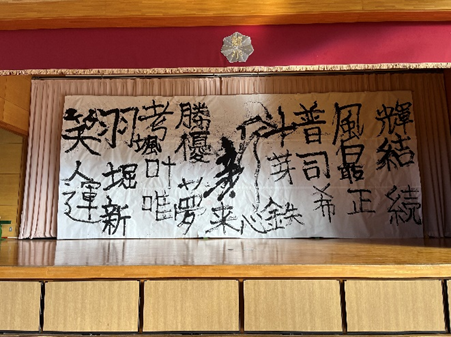 輝結続
風最正
普司希
斗芽鉄
心
来
勝優夢
考颯叶唯
羽堀新
笑人運